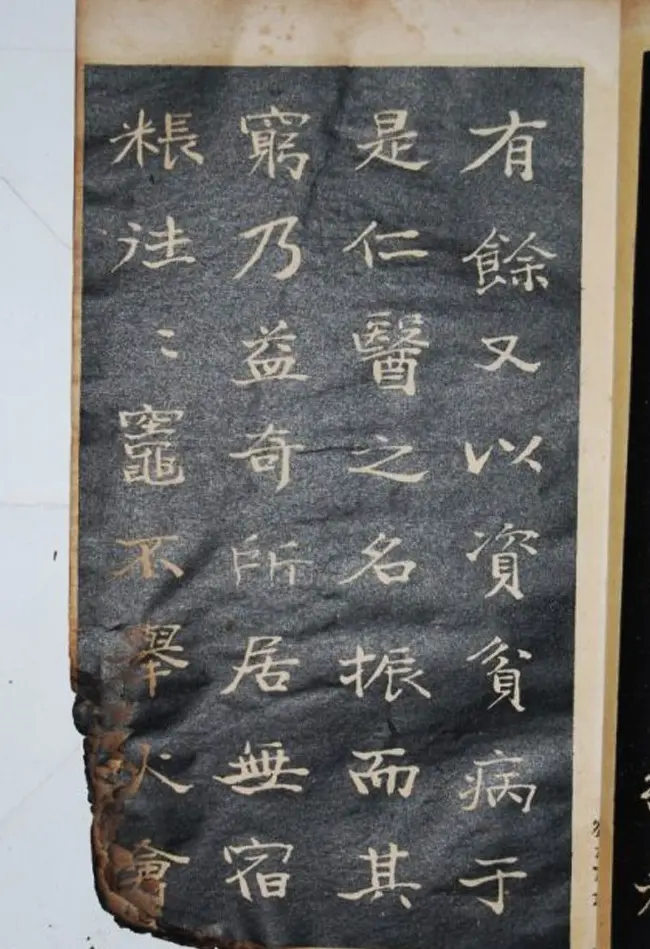 有餘又以資貧病于
是仁醫之名振而其
窮乃益奇所居無宿
粻往〻竈不舉火會